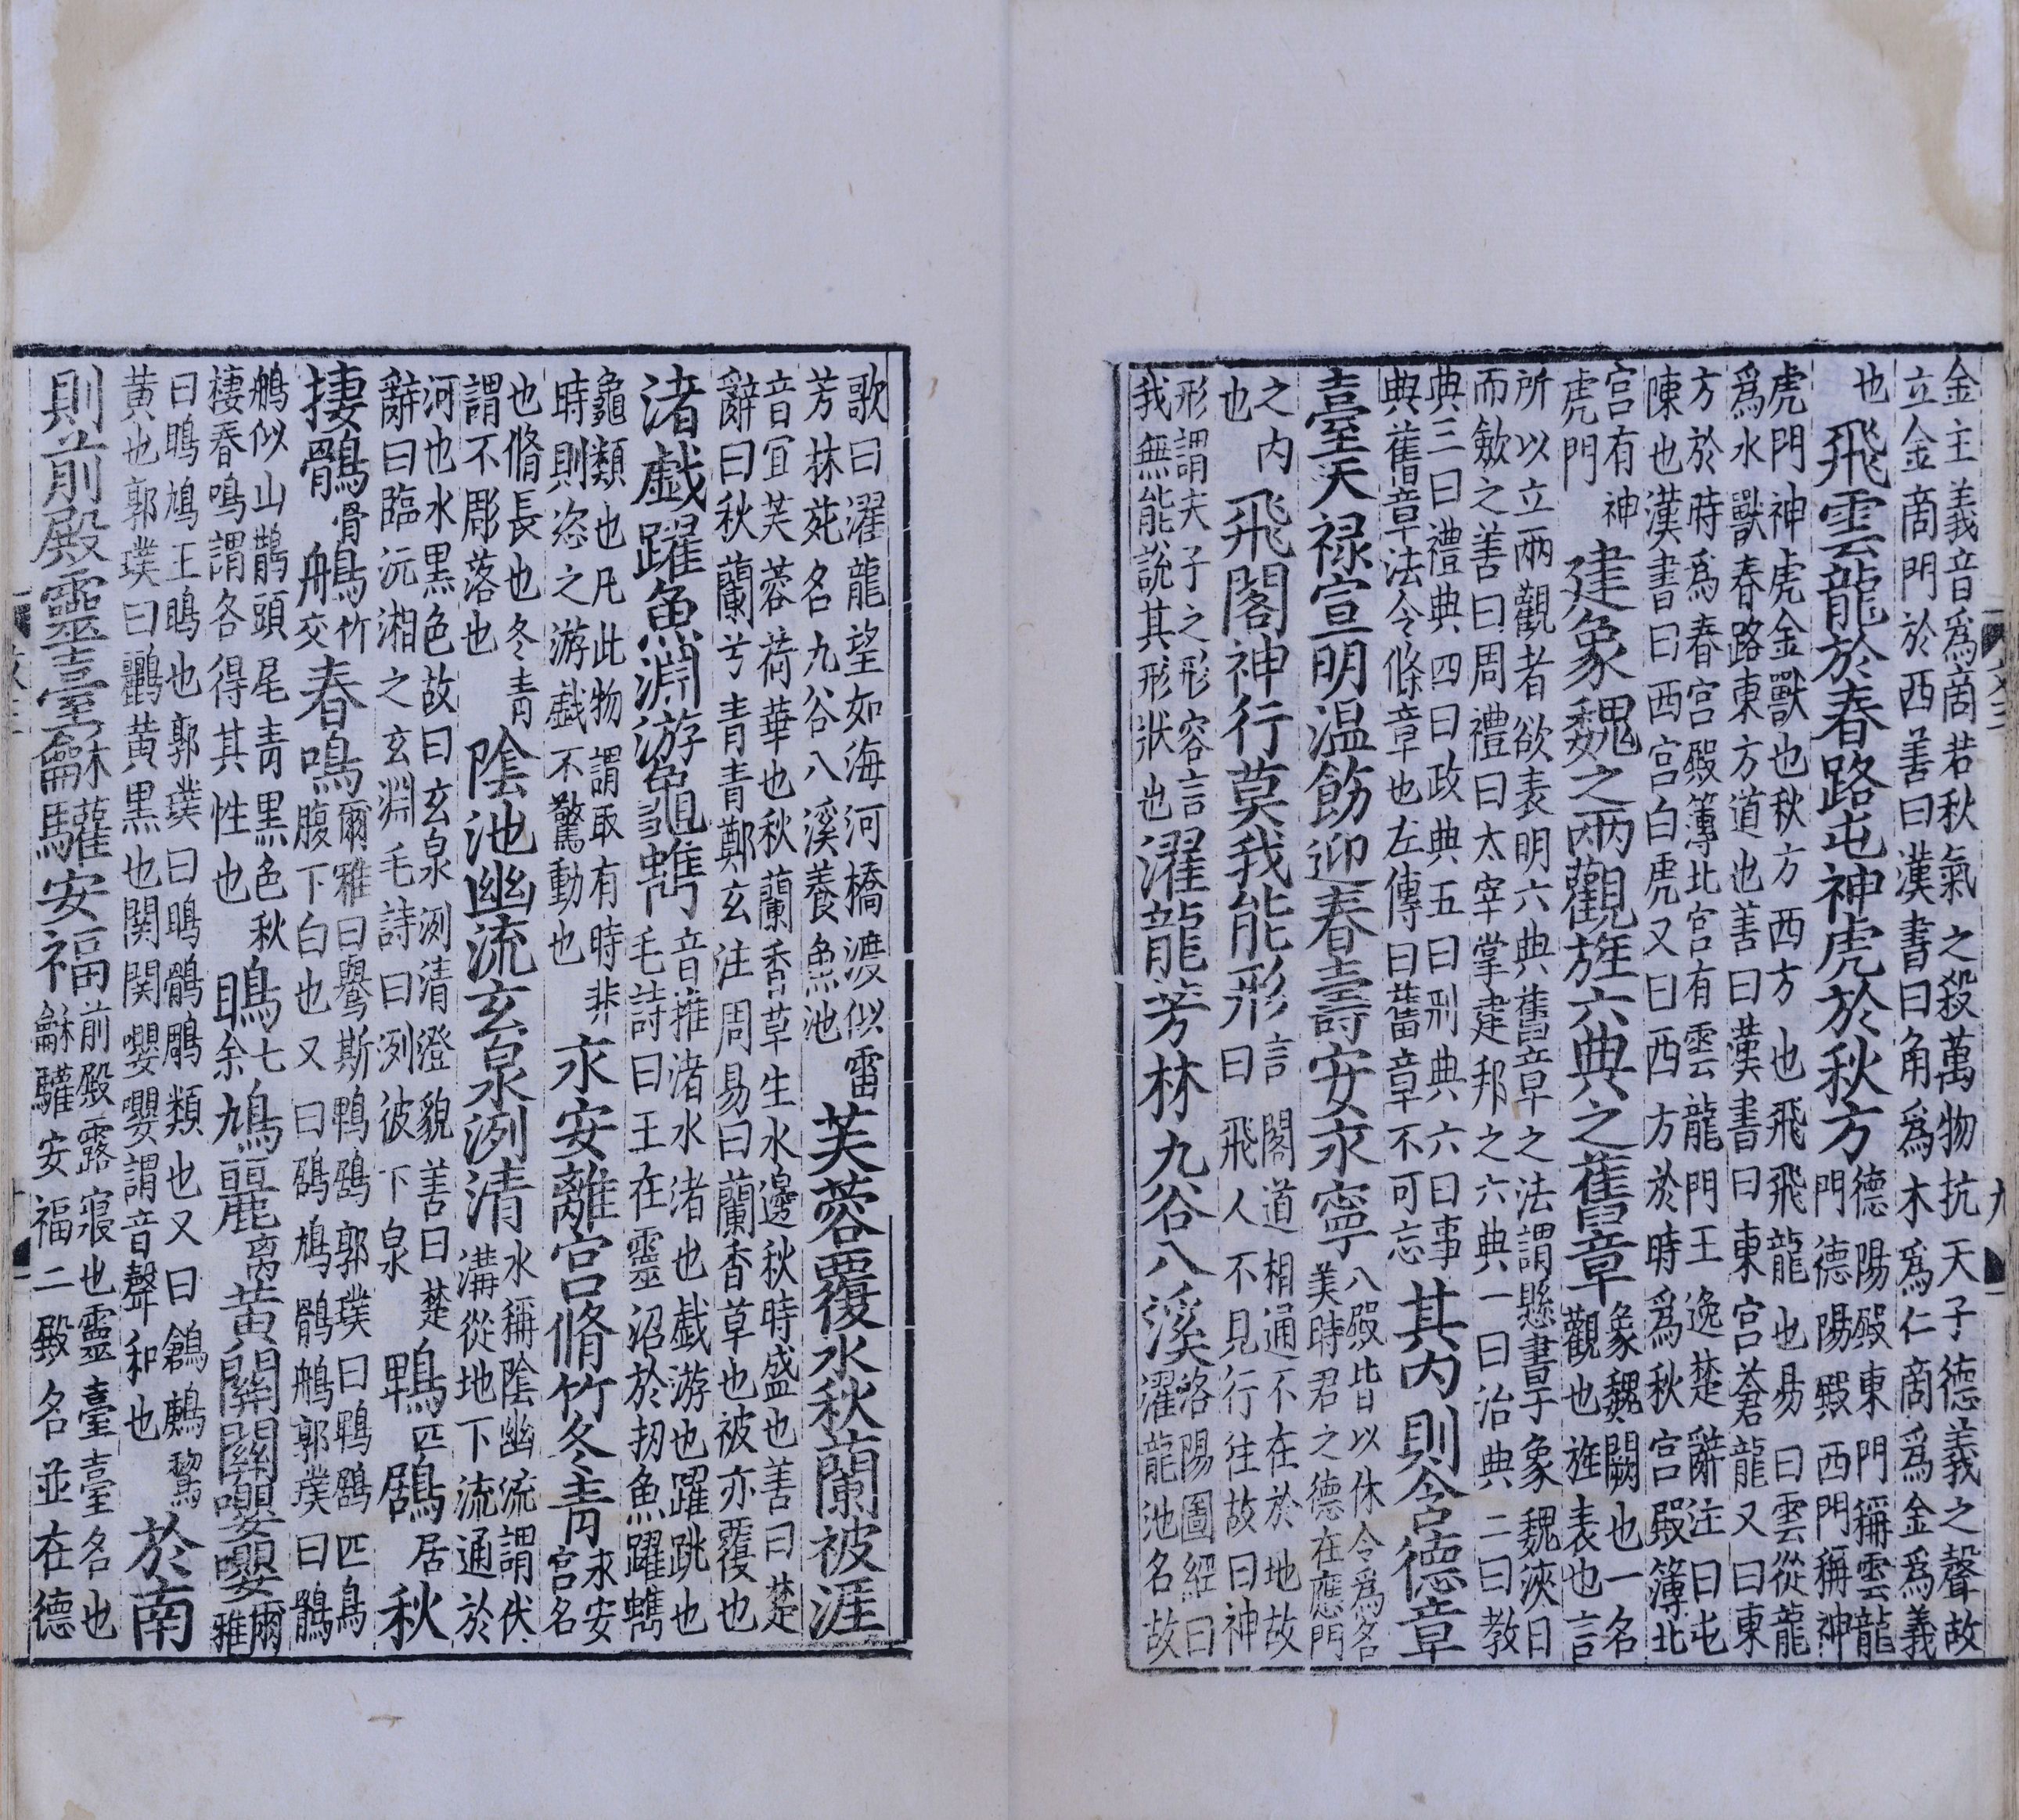 金主義音爲啇若秋氣之殺萬物抗天子德義之聲故
立金啇門於西善曰漢書曰角爲木爲仁啇爲金爲義
也飛雲龍於春路屯神虎於秋方德陽殿東門稱雲龍門德陽殿西門稱神
虎門神虎金獸也秋方西方也飛飛龍也易曰雲從龍
爲水獸春路東方道也善曰漢書曰東宫蒼龍又曰東
方於時爲春宫殿簿北宫有雲龍門王逸楚辭注曰屯
陳也漢書曰西宫白虎又曰西方於時爲秋宫殿簿北
宫有神虎門建象魏之兩觀旌六典之舊章象魏闕也一名觀也旌表也言
所以立兩觀者欲表明六典舊章之法謂懸書于象魏浹日
而斂之善曰周禮曰太宰掌建邦之六典一曰治典二曰教
典三曰禮典四曰政典五曰刑典六曰事典舊章法令條章也左傳曰舊章不可忘其内則含德章
臺天禄宣明温飭迎春壽安永寧八殿皆以休令爲名美時君之德在應門
之内也飛閣神行莫我能形言閣道相通不在於地故曰飛人不見行往故曰神
形謂夫子之形容言我無能說其形狀也濯龍芳林九谷八溪洛陽圖經曰濯龍池名故
歌曰濯龍望如海河橋渡似雷芳林苑名九谷八溪養魚池芙蓉覆水秋蘭被涯
音宜芙蓉荷華也秋蘭香草生水邊秋時盛也善曰楚
辭曰秋蘭兮青青鄭玄注周易曰蘭香草也被亦覆也
渚戲躍魚淵游龜蠵音摧渚水渚也戲游也躍跳也毛詩曰王在靈沼於牣魚躍蠵
龜類也凡此物謂取有時非時則恣之游戲不驚動也永安離宫脩竹冬青永安宫名
也脩長也冬青謂不彫落也陰池幽流玄泉洌清水稱陰幽流謂伏溝從地下流通於
河也水黑色故曰玄泉洌清澄貌善曰楚辭曰臨沅湘之玄淵毛詩曰洌彼下泉鵯匹鶋居秋
棲鶻骨鵃竹交舟春鳴爾雅曰鸒斯鵯鶋郭璞曰鵯鶋匹鳥腹下白也又曰鶌鳩鶻鵃郭璞曰鶻
鵃似山鵲頭尾青黑色秋棲春鳴謂各得其性也鴡七余鳩麗离黄關關嚶嚶爾雅
曰鴡鳩王鴡也郭璞曰鴡鶻鵰類也又曰鶬鶊鵹
黄也郭璞曰鸝黄黑也関関嚶嚶謂音聲和也於南
則前殿靈臺龢驩安福前殿露寢也靈臺臺名也龢驩安福二殿名並在德